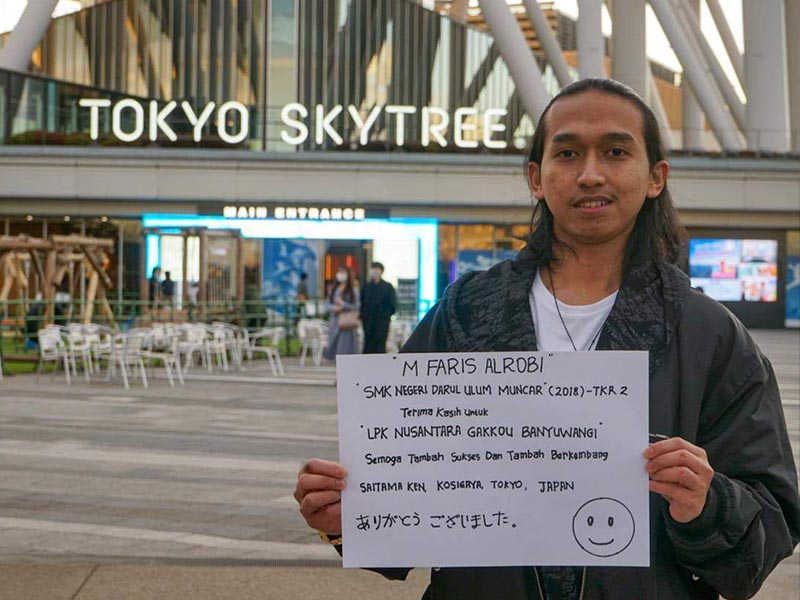 TOKYO SKYTREE
MAIN ENTRANCE
"M FARIS ALROBI"
"SMK NEGERI DARUL ULUM MUNCAR" (2018) - TKR 2
Terima Kasih Untuk
"LPK NUSANTARA GAKKOU BANYUWANGI"
Semoga Tambah Sukses Dan Tambah Berkembang
SAITAMA KEN, KOSIGAYA, TOKYO, JAPAN
ありがとう ございました。